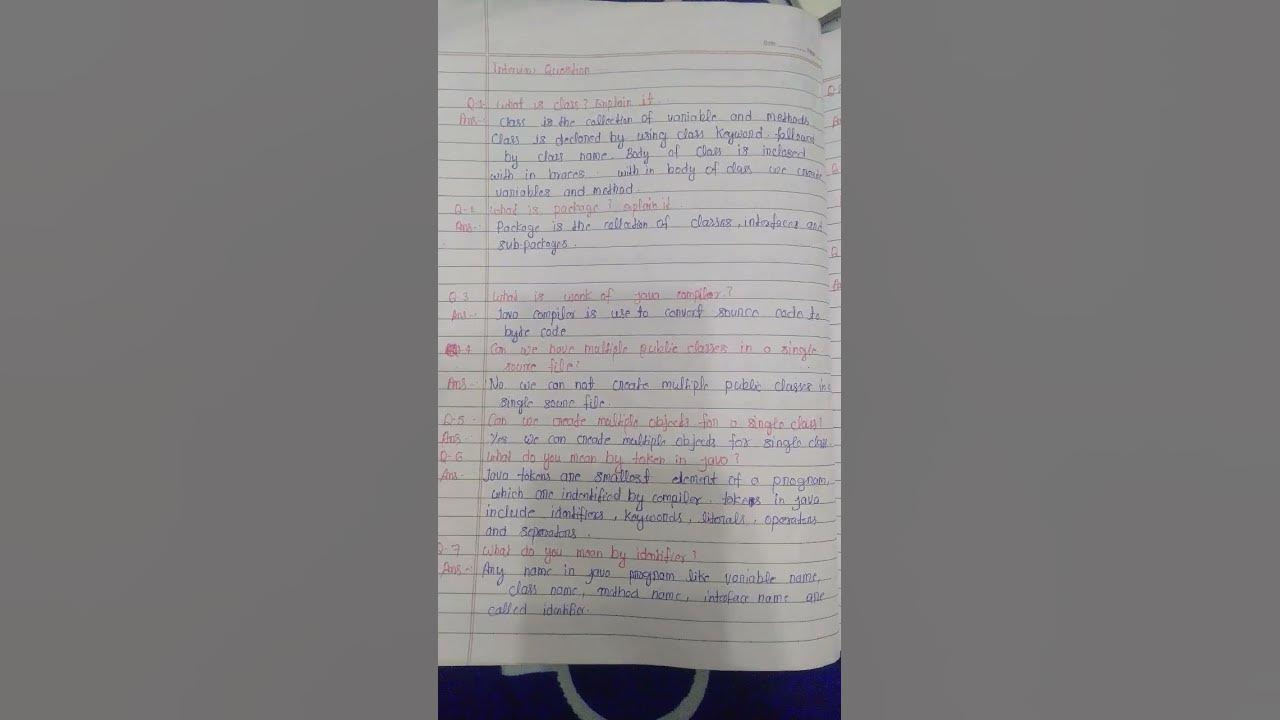 Date
Interview Question
Q-1 What is class? Explain it.
Ans:- Class is the collection of variable and methods
Class is declared by using class keyword followed
by class name. Body of class is inclosed
with in braces. with in body of class we create
variables and method.
Q-2 What is package? explain it.
Ans:- Package is the collection of classes, interfaces and
sub-packages.
Q-3 What is work of java compiler?
Ans:- Java compiler is use to convert source code to
byte code
Q-4 Can we have multiple public classes in a single
source file?
Ans:- No we can not create multiple public classes in
single source file.
Q-5 Can we create multiple objects for a single class?
Ans:- Yes we can create multiple objects for single class.
Q-6 What do you mean by token in java?
Ans:- Java tokens are smallest element of a program,
which are indentified by compiler. tokens in java
include identifiers, keywords, literals, operators
and separators.
Q-7 What do you mean by identifier?
Ans:- Any name in java program like variable name,
class name, method name, interface name are
called identifier.